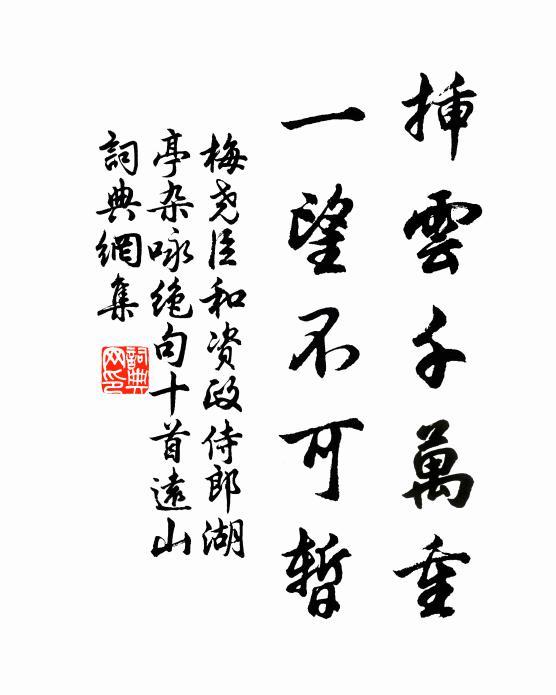 挿雲千萬重
一望不可暫
梅尧臣和资政侍郎湖
亭杂咏绝句十首遠山
詞典網集
詞典
网印